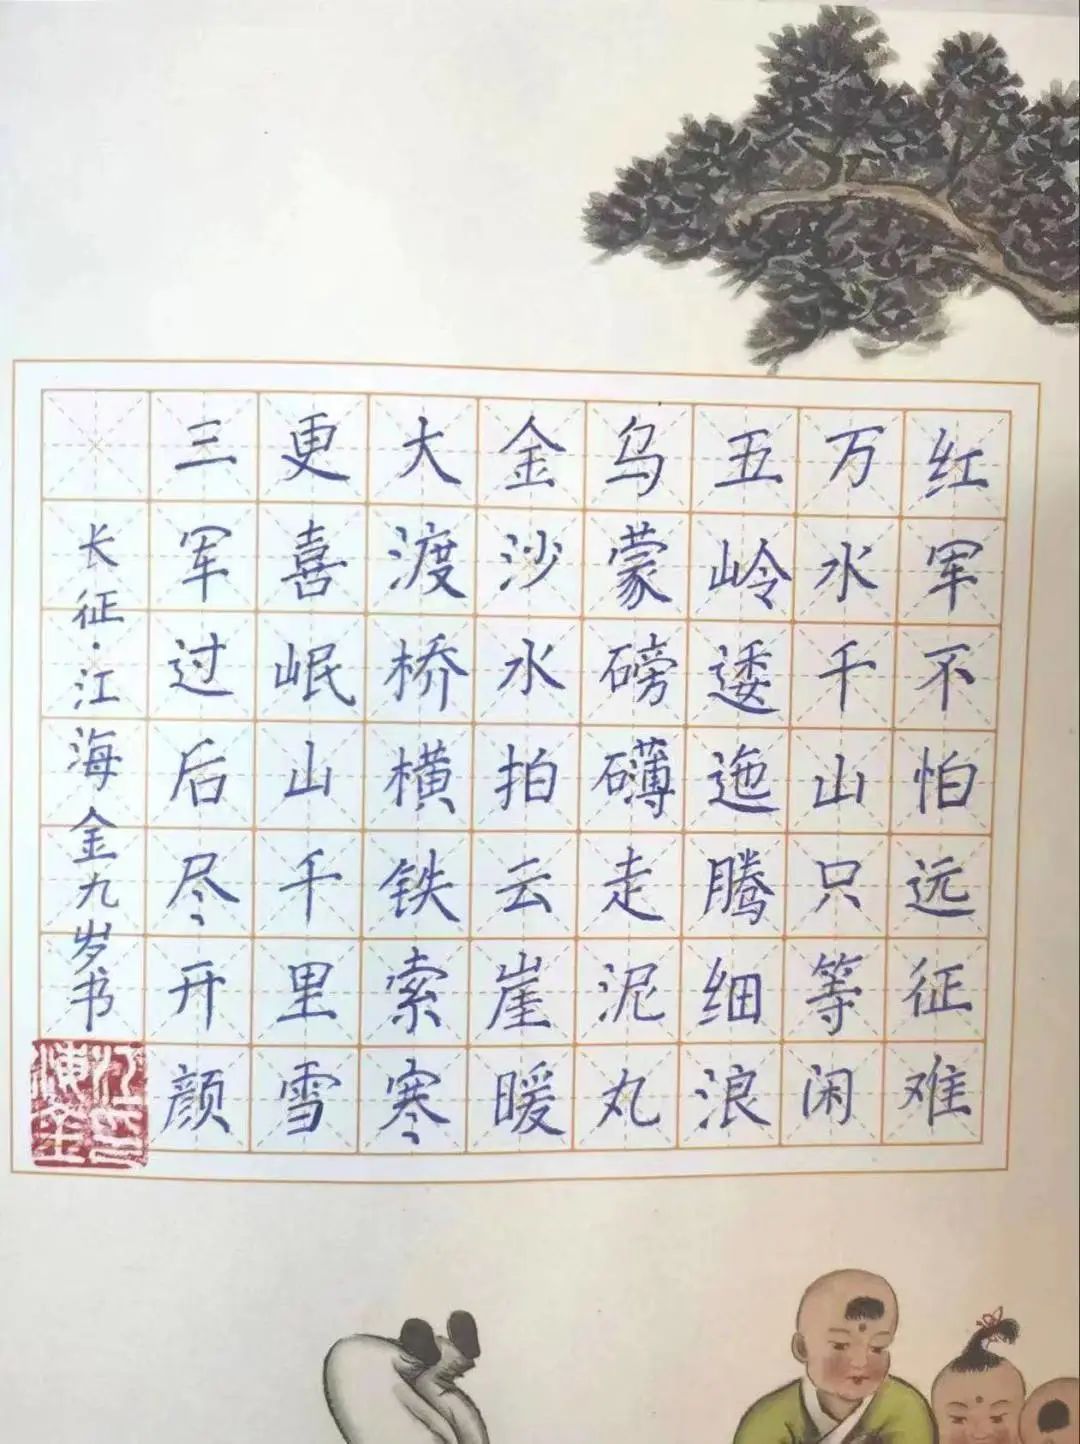 红军不怕远征难
万水千山只等闲
五岭逶迤腾细浪
乌蒙磅礴走泥丸
金沙水拍云崖暖
大渡桥横铁索寒
更喜岷山千里雪
三军过后尽开颜
长征·江海金九岁书